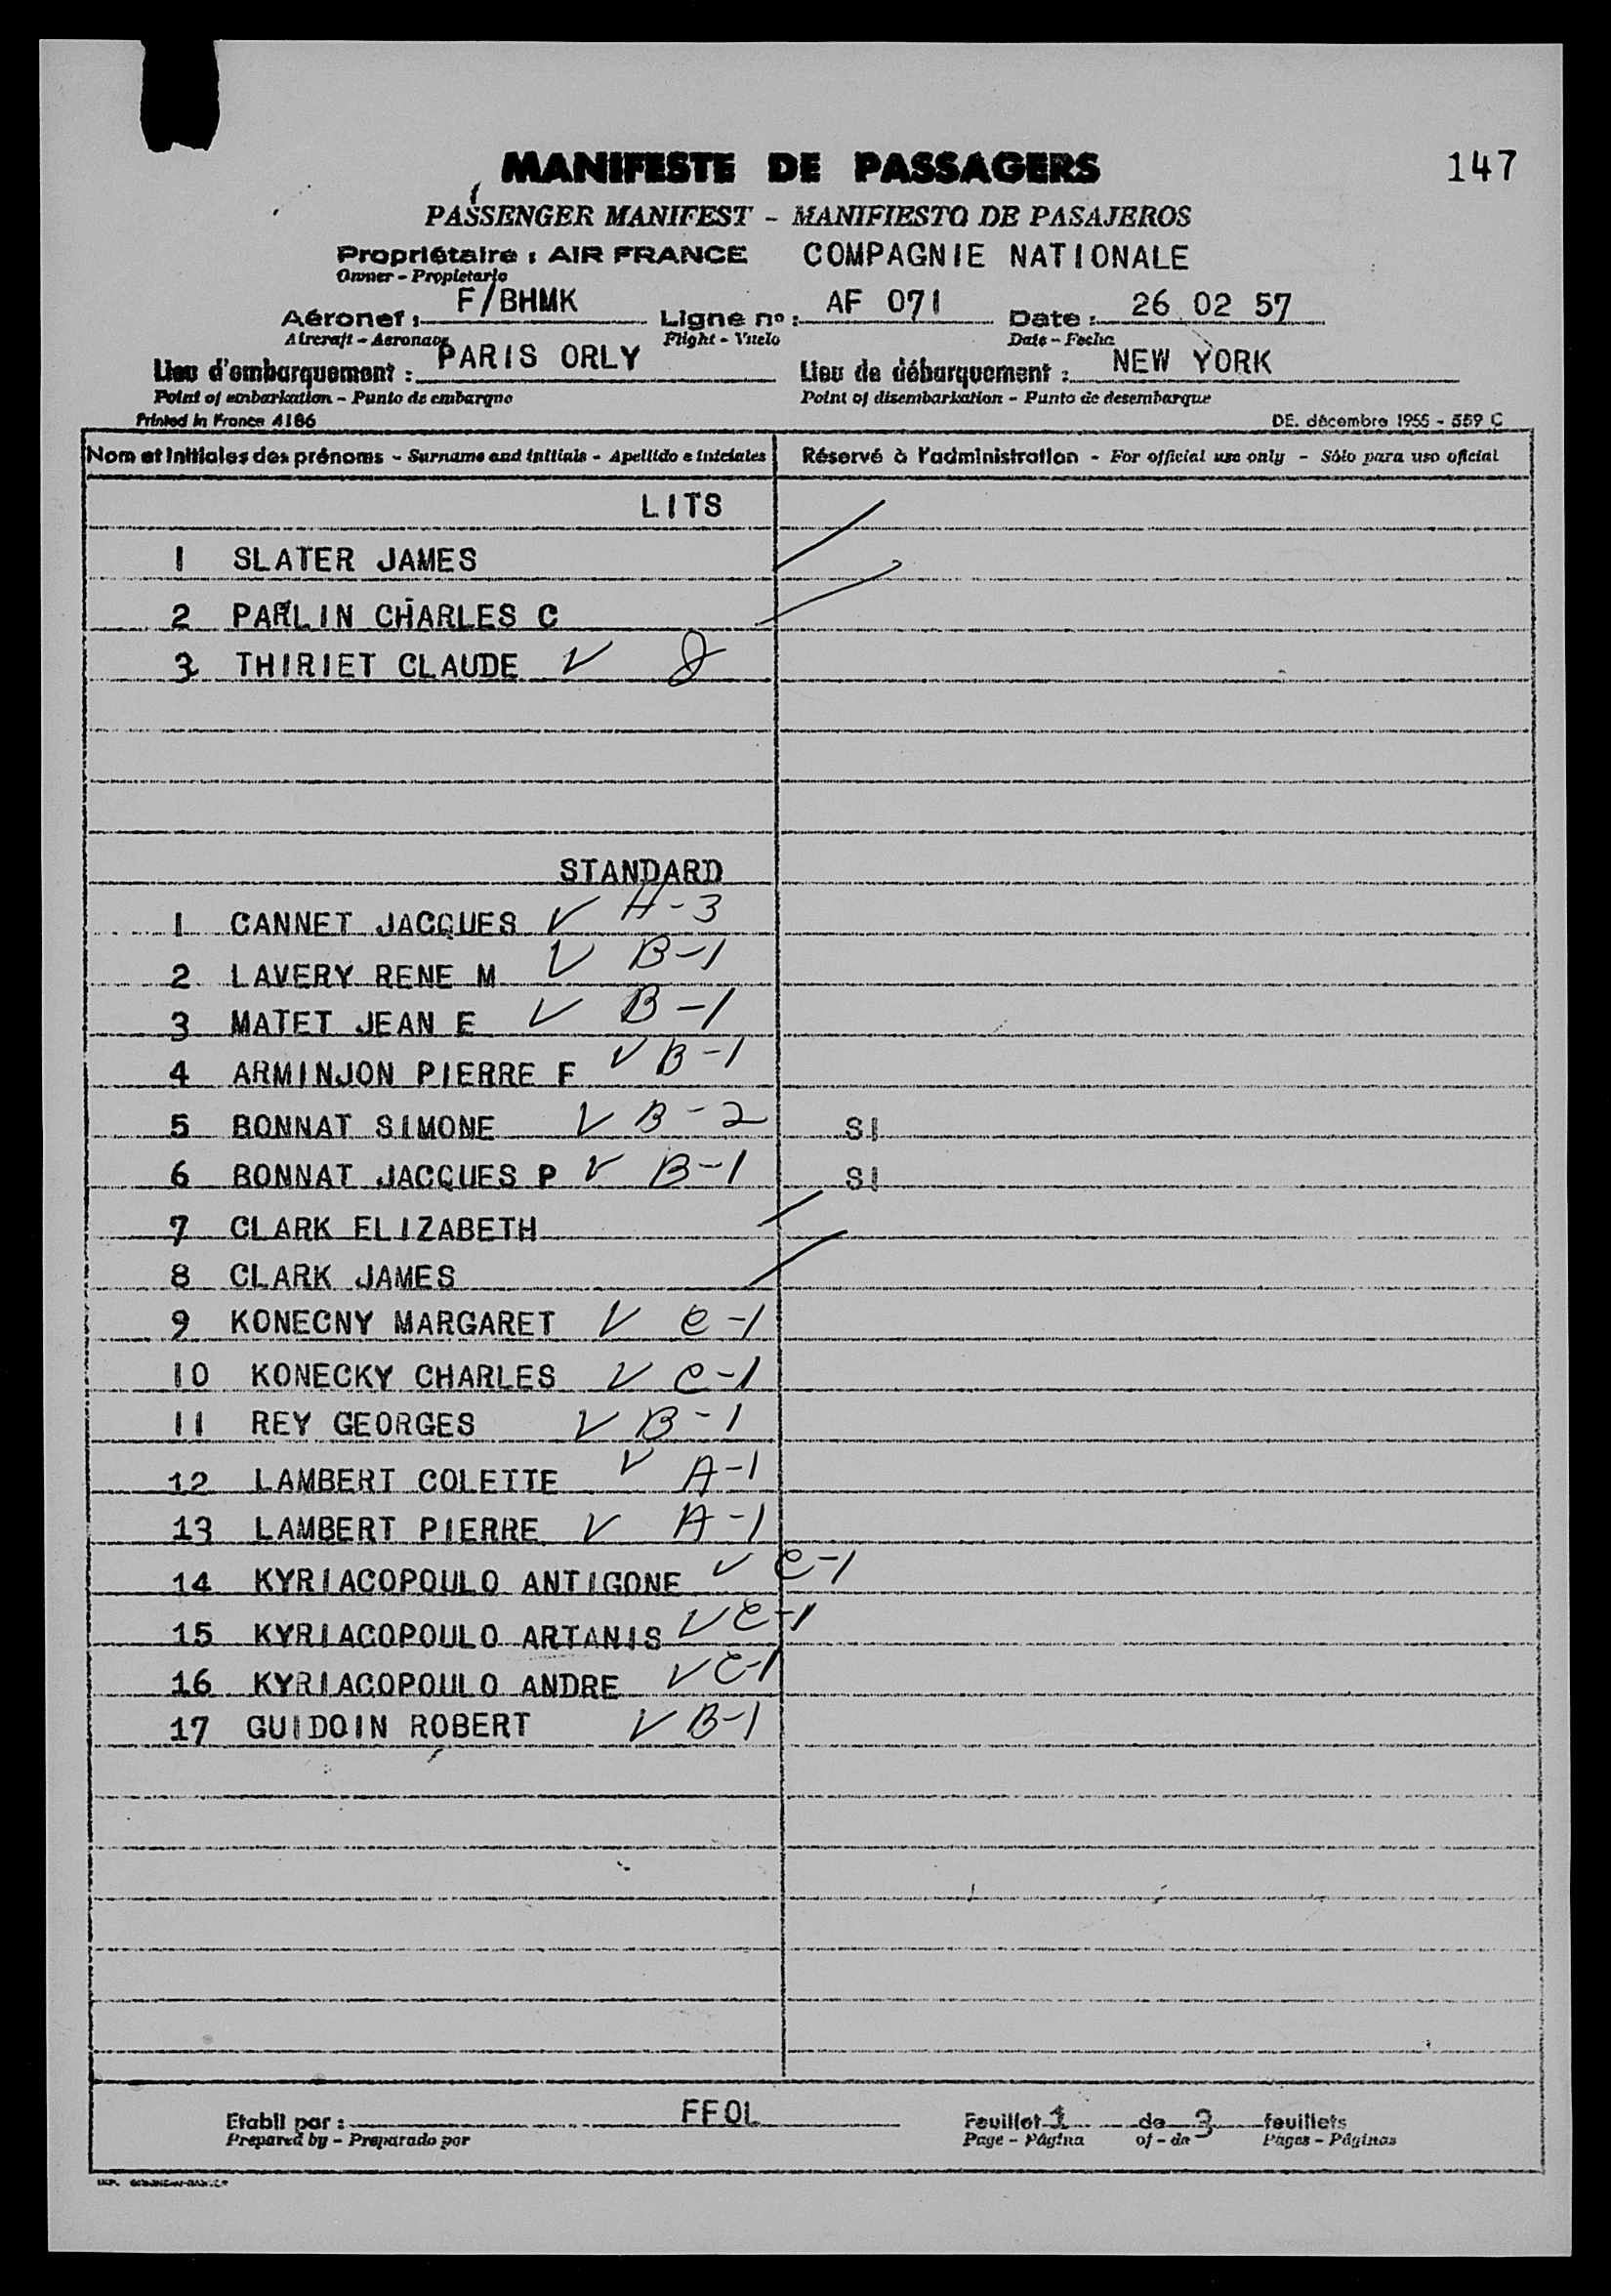 MANIFESTE DE PASSAGERS
147
PASSENGER MANIFEST - MANIFIESTO DE PASAJEROS
Propriétaire : AIR FRANCE COMPAGNIE NATIONALE
Owner - Propietario
Aéronef : F/BHMK Ligne nº : AF 071 Date : 26 02 57
Aircraft - Aeronave Flight - Vuelo Date - Fecha
Lieu d'embarquement : PARIS ORLY Lieu de débarquement : NEW YORK
Point of embarkation - Punto de embarque Point of disembarkation - Punto de desembarque
Printed in France 4186 DE. décembre 1955 - 559 C
Nom et initiales des prénoms - Surname and initials - Apellido e iniciales Réservé à l'administration - For official use only - Sólo para uso oficial
LITS
1 SLATER JAMES
2 PARLIN CHARLES C
3 THIRIET CLAUDE V
STANDARD
1 CANNET JACQUES V H-3
2 LAVERY RENE M V B-1
3 MATET JEAN E V B-1
4 ARMINJON PIERRE F V B-1
5 BONNAT SIMONE V B-2 SI
6 BONNAT JACQUES P V B-1 SI
7 CLARK ELIZABETH
8 CLARK JAMES
9 KONECNY MARGARET V C-1
10 KONECKY CHARLES V C-1
11 REY GEORGES V B-1
12 LAMBERT COLETTE V A-1
13 LAMBERT PIERRE V A-1
14 KYRIACOPOULO ANTIGONE V C-1
15 KYRIACOPOULO ARTANIS V C-1
16 KYRIACOPOULO ANDRE V C-1
17 GUIDOIN ROBERT V B-1
Etabli par : FFOL Feuillet 1 de 3 feuillets
Prepared by - Preparado por Page - Página of - de Pages - Páginas